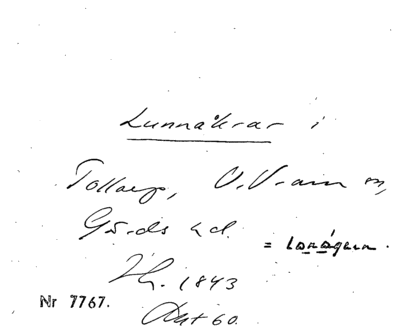 Lunnåkrar i
Tollarp, V. Vram sn,
Gärds hd.
= lonågum.
1843
Nr 7767.